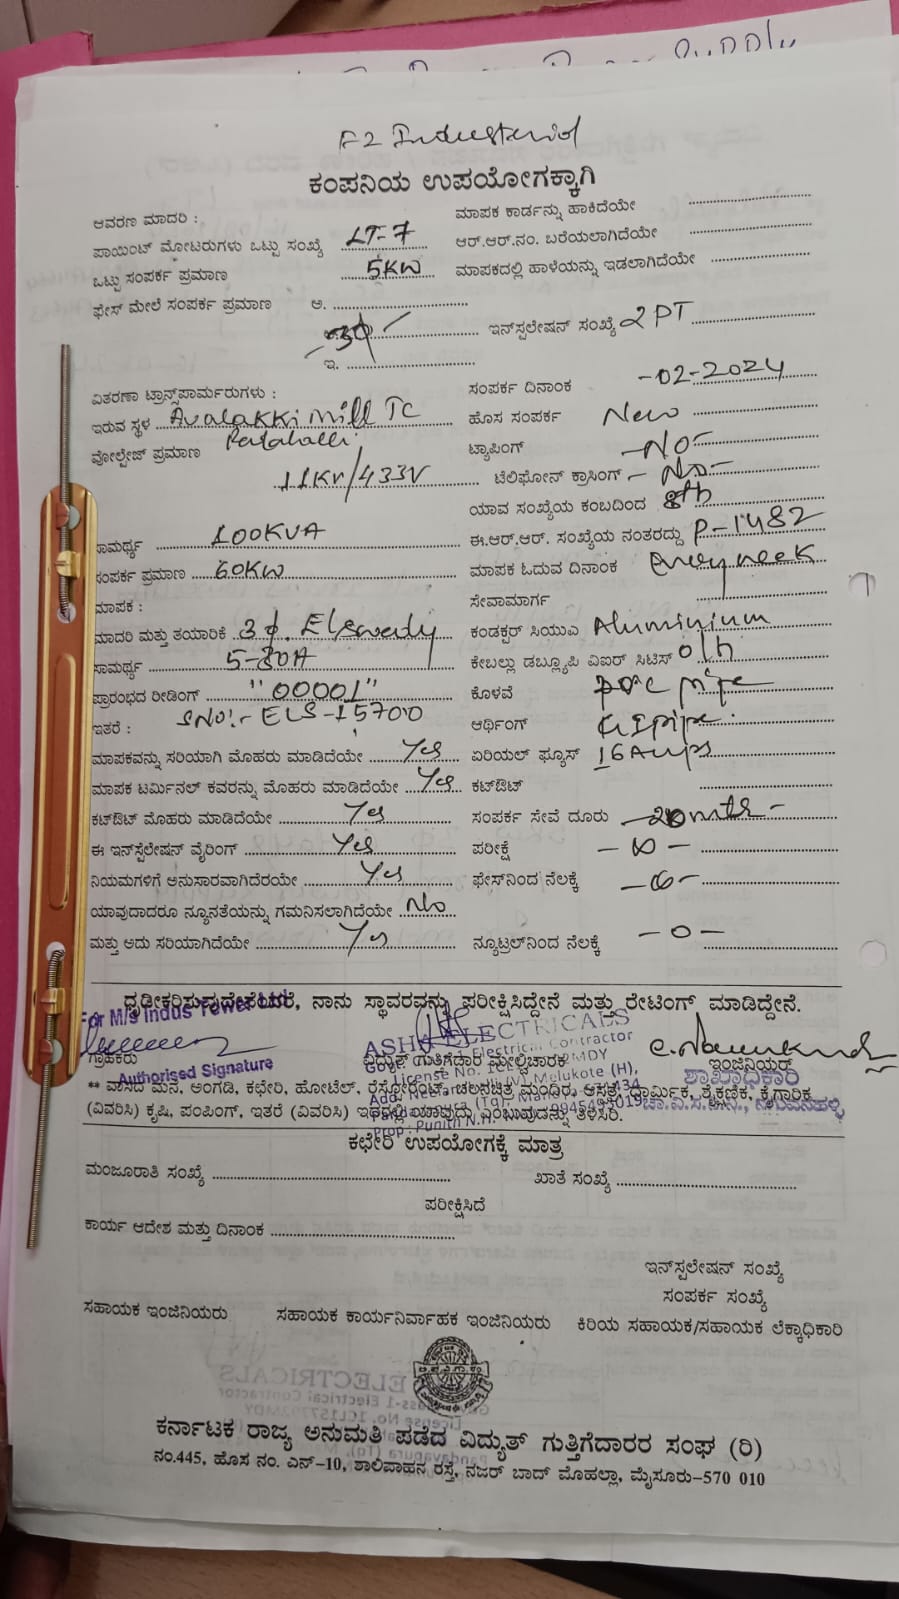 F2 Industerial
ಕಂಪನಿಯ ಉಪಯೋಗಕ್ಕಾಗಿ
ಆವರಣ ಮಾದರಿ :
ಮಾಪಕ ಕಾರ್ಡನ್ನು ಹಾಕಿದೆಯೇ
ಪಾಯಿಂಟ್ ಮೋಟರುಗಳು ಒಟ್ಟು ಸಂಖ್ಯೆ LT-7
ಆರ್.ಆರ್.ನಂ. ಬರೆಯಲಾಗಿದೆಯೇ
ಒಟ್ಟು ಸಂಪರ್ಕ ಪ್ರಮಾಣ 5KW
ಮಾಪಕದಲ್ಲಿ ಹಾಳೆಯನ್ನು ಇಡಲಾಗಿದೆಯೇ
ಫೇಸ್ ಮೇಲೆ ಸಂಪರ್ಕ ಪ್ರಮಾಣ ಅ.
3φ
ಇನ್‌ಸ್ಪಲೇಷನ್ ಸಂಖ್ಯೆ 2 PT
ಇ.
ವಿತರಣಾ ಟ್ರಾನ್ಸ್‌ಪಾರ್ಮರುಗಳು :
ಸಂಪರ್ಕ ದಿನಾಂಕ -02-2024
ಇರುವ ಸ್ಥಳ Avalakki mill TC
ಹೊಸ ಸಂಪರ್ಕ New
ವೋಲ್ಟೇಜ್ ಪ್ರಮಾಣ
ಟ್ಯಾಪಿಂಗ್ -No-
11KV/433V
ಟೆಲಿಫೋನ್ ಕ್ರಾಸಿಂಗ್ - No-
ಯಾವ ಸಂಖ್ಯೆಯ ಕಂಬದಿಂದ 8th
ಸಾಮರ್ಥ್ಯ 100KVA
ಈ.ಆರ್.ಆರ್. ಸಂಖ್ಯೆಯ ನಂತರದ್ದು P-1482
ಸಂಪರ್ಕ ಪ್ರಮಾಣ 60KW
ಮಾಪಕ ಓದುವ ದಿನಾಂಕ
ಮಾಪಕ :
ಸೇವಾಮಾರ್ಗ
ಮಾದರಿ ಮತ್ತು ತಯಾರಿಕೆ 3φ.
ಕಂಡಕ್ಟರ್ ಸಿಯುಎ Aluminium
ಸಾಮರ್ಥ್ಯ 5-30A
ಕೇಬಲ್ಲು ಡಬ್ಲ್ಯೂಪಿ ವಿಐರ್ ಸಿಟಿಸ್ o/h
ಪ್ರಾರಂಭದ ರೀಡಿಂಗ್ "00001"
ಕೊಳವೆ
ಇತರೆ : SNO:- ELS-15700
ಆರ್ಥಿಂಗ್ GI pipe.
ಮಾಪಕವನ್ನು ಸರಿಯಾಗಿ ಮೊಹರು ಮಾಡಿದೆಯೇ Yes
ಏರಿಯಲ್ ಫ್ಯೂಸ್ 16 Amps
ಮಾಪಕ ಟರ್ಮಿನಲ್ ಕವರನ್ನು ಮೊಹರು ಮಾಡಿದೆಯೇ Yes
ಕಟ್‌ಔಟ್
ಕಟ್‌ಔಟ್ ಮೊಹರು ಮಾಡಿದೆಯೇ Yes
ಸಂಪರ್ಕ ಸೇವೆ ದೂರು -20 mts -
ಈ ಇನ್‌ಸ್ಟೆಲೇಷನ್ ವೈರಿಂಗ್ Yes
ಪರೀಕ್ಷೆ
ನಿಯಮಗಳಿಗೆ ಅನುಸಾರವಾಗಿದೆರಯೇ Yes
ಫೇಸ್‌ನಿಂದ ನೆಲಕ್ಕೆ
ಯಾವುದಾದರೂ ನ್ಯೂನತೆಯನ್ನು ಗಮನಿಸಲಾಗಿದೆಯೇ No
ಮತ್ತು ಅದು ಸರಿಯಾಗಿದೆಯೇ Yes
ನ್ಯೂಟ್ರಲ್‌ನಿಂದ ನೆಲಕ್ಕೆ -0-
ದೃಢೀಕರಿಸುವುದೇನೆಂದರೆ, ನಾನು ಸ್ಥಾವರವನ್ನು ಪರೀಕ್ಷಿಸಿದ್ದೇನೆ ಮತ್ತು ರೇಟಿಂಗ್ ಮಾಡಿದ್ದೇನೆ.
For M/s Indus Tower Ltd
ASHA ELECTRICALS
ಗ್ರಾಹಕರು
ವಿದ್ಯುತ್ ಗುತ್ತಿಗೆದಾರ ಮೇಲ್ವಿಚಾರಕ
ಇಂಜಿನಿಯರ್
Authorised Signature
ಶಾಖಾಧಿಕಾರಿ
** ವಾಸದ ಮನೆ, ಅಂಗಡಿ, ಕಛೇರಿ, ಹೋಟೆಲ್, ರೆಸ್ಟೋರೆಂಟ್, ಚಲನಚಿತ್ರ ಮಂದಿರ, ಆಸ್ಪತ್ರೆ, ಧಾರ್ಮಿಕ, ಶೈಕ್ಷಣಿಕ, ಕೈಗಾರಿಕ
(ವಿವರಿಸಿ) ಕೃಷಿ, ಪಂಪಿಂಗ್, ಇತರೆ (ವಿವರಿಸಿ) ಇವುಗಳಲ್ಲಿ ಯಾವುದು ಎಂಬುವುದನ್ನು ತಿಳಿಸಿರಿ.
Prop: Punith N.H.
ಕಛೇರಿ ಉಪಯೋಗಕ್ಕೆ ಮಾತ್ರ
ಮಂಜೂರಾತಿ ಸಂಖ್ಯೆ
ಖಾತೆ ಸಂಖ್ಯೆ
ಪರೀಕ್ಷಿಸಿದೆ
ಕಾರ್ಯ ಆದೇಶ ಮತ್ತು ದಿನಾಂಕ
ಇನ್‌ಸ್ಪಲೇಷನ್ ಸಂಖ್ಯೆ
ಸಂಪರ್ಕ ಸಂಖ್ಯೆ
ಸಹಾಯಕ ಇಂಜಿನಿಯರು
ಸಹಾಯಕ ಕಾರ್ಯನಿರ್ವಾಹಕ ಇಂಜಿನಿಯರು
ಕಿರಿಯ ಸಹಾಯಕ/ಸಹಾಯಕ ಲೆಕ್ಕಾಧಿಕಾರಿ
ಕರ್ನಾಟಕ ರಾಜ್ಯ ಅನುಮತಿ ಪಡೆದ ವಿದ್ಯುತ್ ಗುತ್ತಿಗೆದಾರರ ಸಂಘ (ರಿ)
ನಂ.445, ಹೊಸ ನಂ. ಎನ್-10, ಶಾಲಿವಾಹನ ರಸ್ತೆ, ನಜರ್ ಬಾದ್ ಮೊಹಲ್ಲಾ, ಮೈಸೂರು-570 010